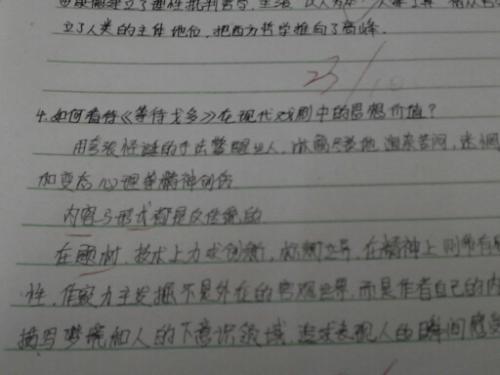 立了人类的主体地位,把西方哲学推向了高峰.
23/
4.如何看待《等待戈多》在现代戏剧中的思想价值?
用夸张怪诞的手法警醒世人,
加变态心理等精神创伤
内容与形式都是反传统的
在题材、技术上力求创新,标新立异,在精神上则带有
性,作家力主发掘不是外在的客观世界,而是作者自己的内
描写梦境和人的下意识领域,追求表现人的瞬间感觉